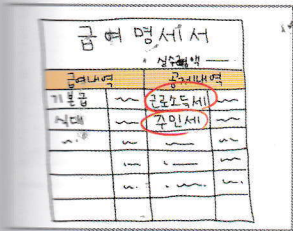 급여명세서
실수령액
급여내역 공제내역
기본급 근로소득세
식대 주민세